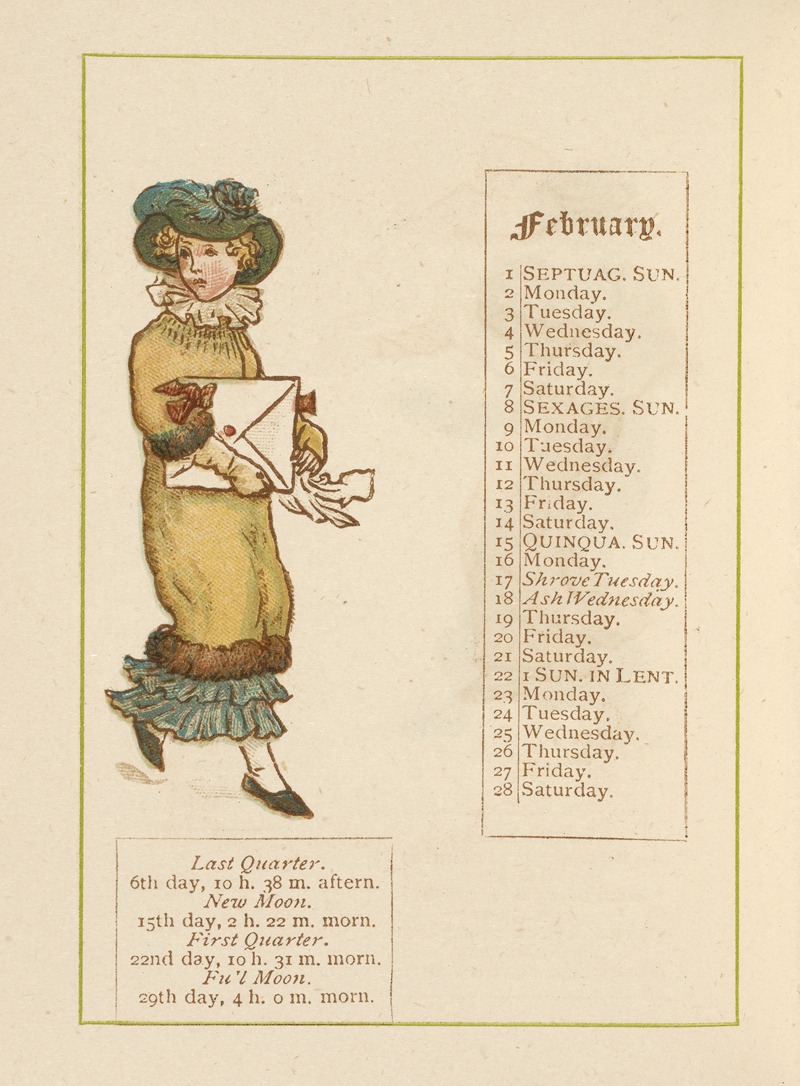 February.
1 SEPTUAG. SUN.
2 Monday.
3 Tuesday.
4 Wednesday.
5 Thursday.
6 Friday.
7 Saturday.
8 SEXAGES. SUN.
9 Monday.
10 Tuesday.
11 Wednesday.
12 Thursday.
13 Friday.
14 Saturday.
15 QUINQUA. SUN.
16 Monday.
17 Shrove Tuesday.
18 Ash Wednesday.
19 Thursday.
20 Friday.
21 Saturday.
22 1 SUN. IN LENT.
23 Monday.
24 Tuesday.
25 Wednesday.
26 Thursday.
27 Friday.
28 Saturday.
Last Quarter.
6th day, 10 h. 38 m. aftern.
New Moon.
15th day, 2 h. 22 m. morn.
First Quarter.
22nd day, 10 h. 31 m. morn.
Full Moon.
29th day, 4 h. 0 m. morn.